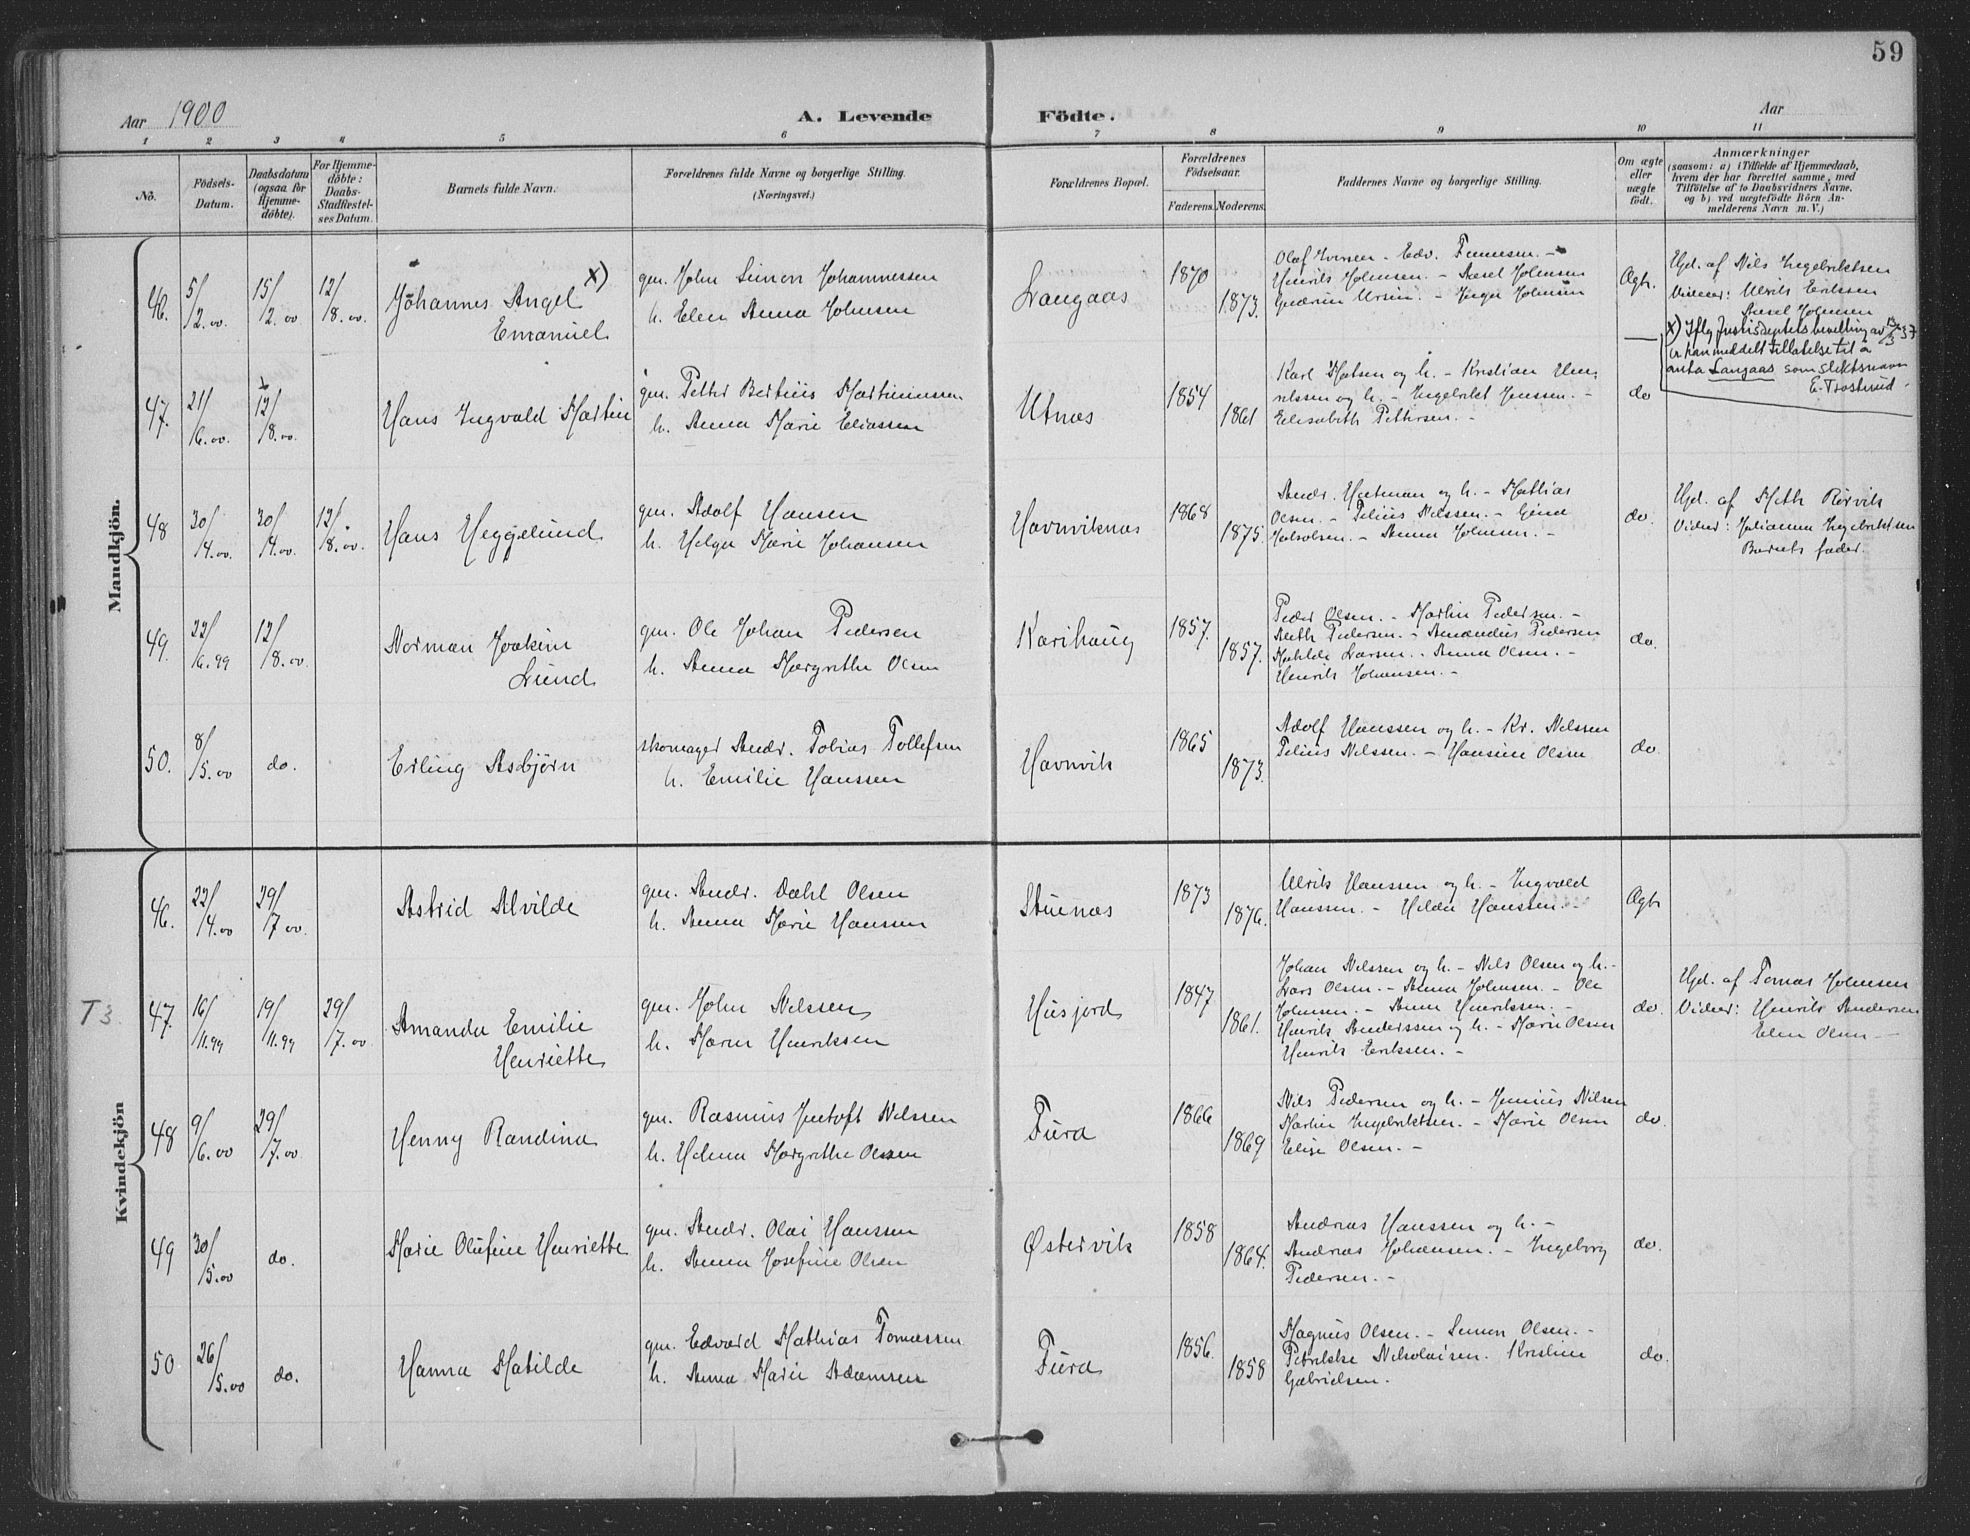 59
Aar 1900 A. Levende Födte. Aar
1 2 3 4 5 6 7 8 9 10 11
No. Födsels-Datum. Daabsdatum (ogsaa for Hjemme-döbte). For Hjemme-döbte: Daabs-Stadfæstel-ses Datum. Barnets fulde Navn. Forældrenes fulde Navne og borgerlige Stilling. (Næringsvei.) Forældrenes Bopæl. Forældrenes Födselsaar. Faderens. Moderens. Faddernes Navne og borgerlige Stilling. Om ægte eller uægte födt. Anmærkninger (saasom: a) i Tilfælde af Hjemmedaab, hvem der har forrettet samme, med Tilföielse af to Daabsvidners Navne, og b) ved uægtefödte Börn An-melderens Navn m. V.)
Mandkjön.
46. 5/12.00. 15/12.00 12/8.00. Johannes Angel x)
Emanuel
gm. John Simon Johannessen
h. Elen Anna Johnsen
Langaas 1870 1873.
Olaf Iversen - Edv. -
Henrik Johnsen. - Aasel Johnsen
Gudrun - Inga Johnsen
Ægte.
Hjd. af Nils Ingebriktsen
Vidner: Ulrik Eriksen
Aasel Johnsen
x) Iflg Justisdeptets bevilling av 13/3 37
er han meddelt tillatelse til å
anta Langaas som slektsnavn
E. Trosterud.
47. 21/6.00. 12/8.00. Hans Ingvald Martin
gm. Petter Bertius Martinussen
h. Anna Marie Eliassen
Utnæs 1854 1861
Karl Matsen og h. - Kristian Hen-
rikssen og h. - Ingebrikt Jenssen. -
Elisabeth Pettersen. -
do
48 30/4.00. 30/4.00. 12/8.00. Hans Heggelund
gm. Adolf Hansen
h. Helga Marie Johansen
Havnviknæs 1868 1875.
Andr. Hartman og h. - Mathias
Olsen. - Pelius Nilssen. - Gina
- Anna Johnsen. -
do.
Hjd. af Meth Rörvik
Vidner: Julianna Ingebriktsen
Barnets fader.
49. 22/6.99 12/8.00. Norman Joakim
Lund
gm. Ole Johan Pedersen
h. Anna Margrethe Olsen
Karihaug 1857. 1857.
Peder Olsen. - Martin Pedersen. -
Meth Pedersen. - Amandus Pedersen
Mathilde Larsen. - Anna Olsen. -
Henrik Johansen. -
do.
50. 8/5.00 do. Erling Asbjørn
skomager Andr. Tobias Tollefsen
h. Emilie Hanssen
Havnvik 1865 1873.
Adolf Hanssen og h. - Kr. Nilssen
Pelius Nilssen. - Hansine Olsen
do.
Kvindekjön
46. 22/4.00 29/7.00. Astrid Alvilde
gm. Andr. Dahl Olsen
h. Anna Marie Hanssen
Stuenæs 1873 1876.
Ulrik Hanssen og h. - Ingvald
Hanssen. - Helda Hanssen. -
Ægte
T 3.
47. 16/11.99 19/11.99 29/7.00 Amanda Emilie
Henriette
gm. John Nilssen
h. Maren Henriksen
Husjord 1847 1861.
Johan Nilssen og h. - Nils Olsen og h. -
Lars Olsen. - Anna Johnsen. - Ole
Johnsen. - Anna Henrikssen. -
Henrik Anderssen og h. - Marie Olsen
Henrik Erikssen. -
do.
Hjd. af Tomas Johnsen
Vidner: Henrik Andersen
Elen Olsen -
48 9/6.00 29/7.00. Henny Randina
gm. Rasmus Jentoft Nilssen
h. Helena Margrethe Olsen
Furd 1866 1869
Nils Pedersen og h. - Jenius Nilsen
Martin Ingebriktsen. - Marie Olsen
Elise Olsen. -
do.
49 30/5.00 do. Marie Olufine Henriette
gm. Andr. Olai Hanssen
h. Anna Josefine Olsen
Østervik 1858 1864.
Andreas Hanssen og h. -
Andreas Johansen. - Ingeborg
Pedersen. -
do.
50 26/5.00 do. Hanna Matilde
gm. Edvard Mathias Tomassen
h. Anna Marie Adamsen
Furd 1856. 1858
Magnus Olsen. - Simon Olsen. -
Petrikke Nikolaisen. Kristine
Gabrielsen.
do.